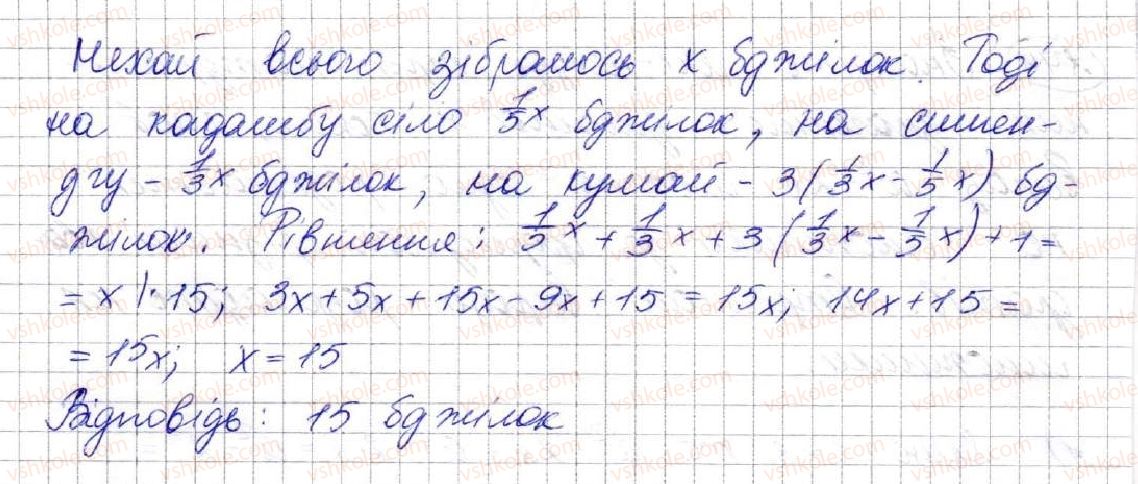 Нехай всього зібралось x бджілок. Тоді
на кадамбу сіло 1/5x бджілок, на сімен-
дгу - 1/3x бджілок, на кумай - 3(1/3x - 1/5x) бд-
жілок. Рівняння: 1/5x + 1/3x + 3(1/3x - 1/5x) + 1 =
= x |·15; 3x + 5x + 15x - 9x + 15 = 15x; 14x + 15 =
= 15x; x = 15
Відповідь: 15 бджілок